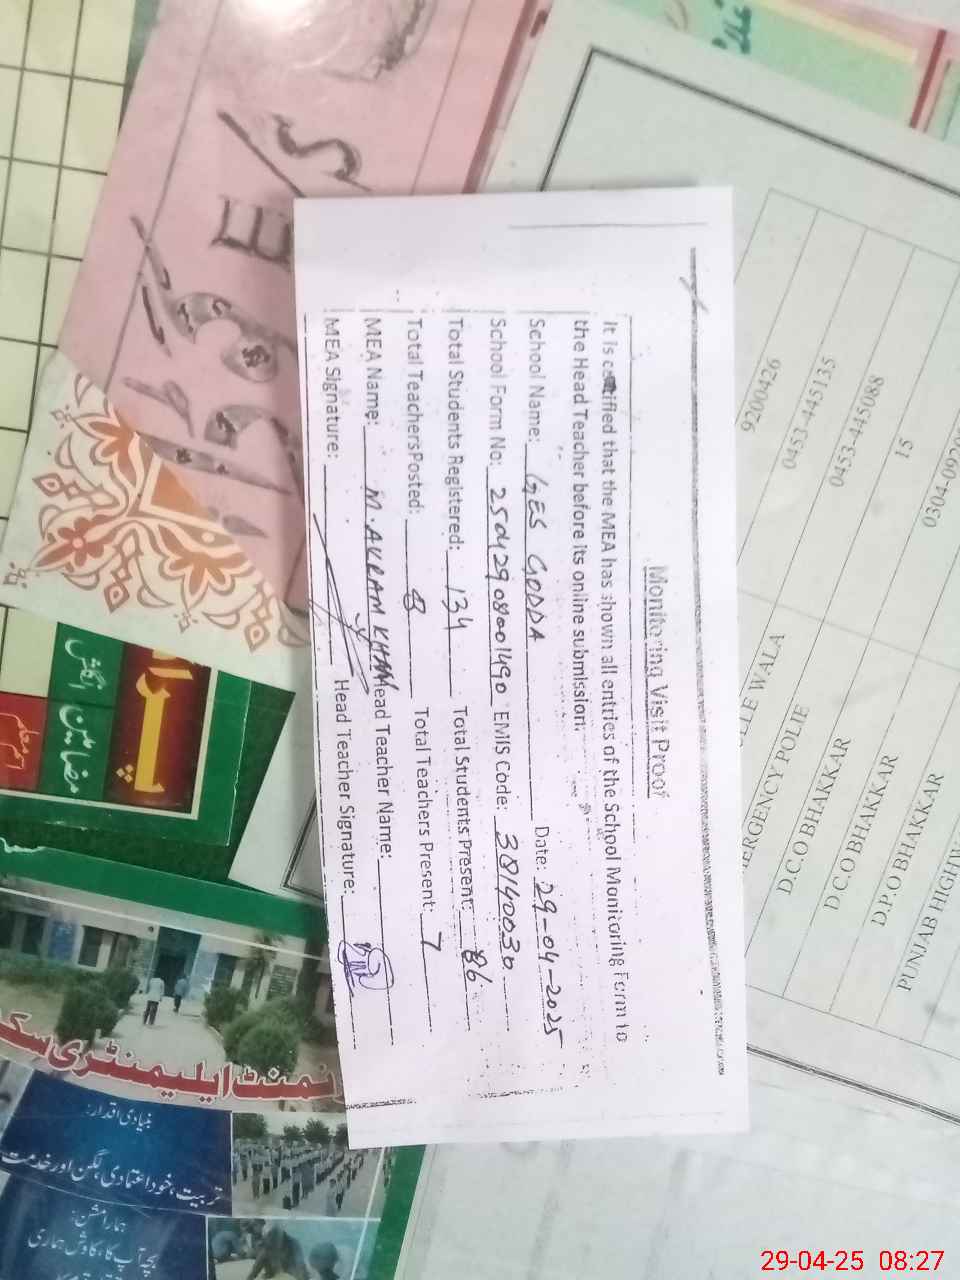 Monitoring Visit Proof
It is certified that the MEA has shown all entries of the School Monitoring Form to
the Head Teacher before its online submission.
School Name: GES GODDA Date: 29-04-2025
School Form No: 25042908001490 EMIS Code: 38140030
Total Students Registered: 134 Total Students Present: 86
Total Teachers Posted: 8 Total Teachers Present: 7
MEA Name: M. AKRAM KHAN Head Teacher Name:
MEA Signature: Head Teacher Signature:
E/S
9200426
0453-445135
0453-445088
15
WALA
D.C.O BHAKKAR
D.C.O BHAKKAR
D.P.O BHAKKAR
مضامین انگلش
بنیادی اقدار:
تربیت، خود اعتمادی، لگن اور خدمت
ہمارا مشن:
بچہ آپ کا، کاوش ہماری
29-04-25 08:27